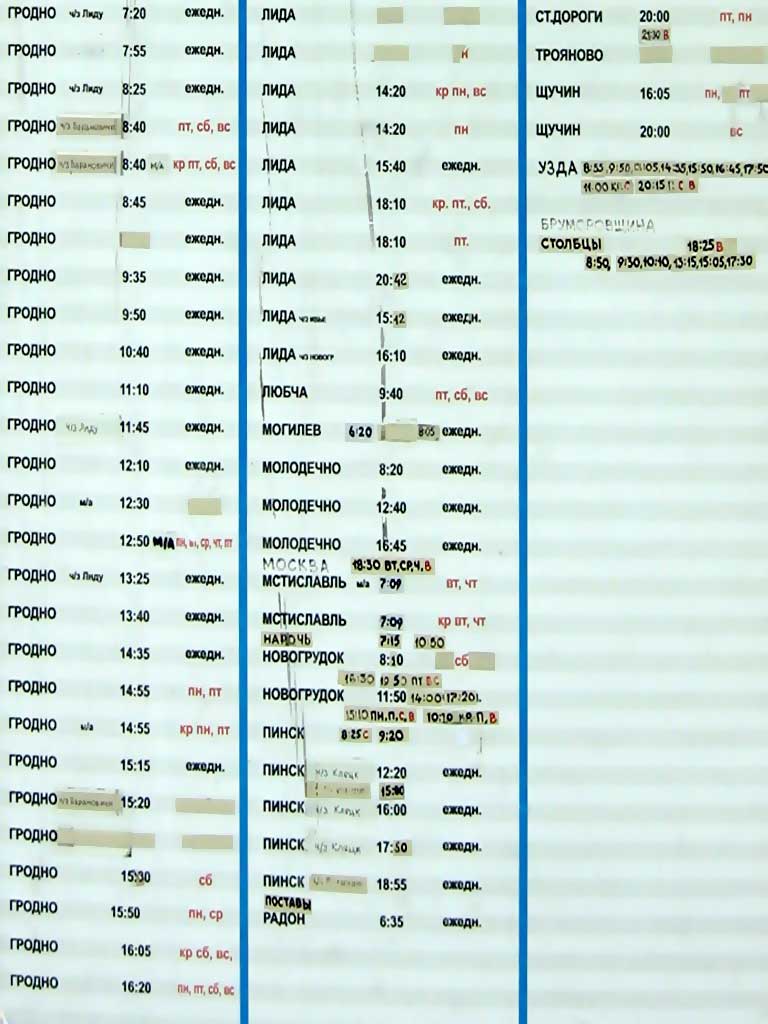 ГРОДНО ч/з Лиду 7:20 ежедн.
ГРОДНО 7:55 ежедн.
ГРОДНО ч/з Лиду 8:25 ежедн.
ГРОДНО ч/з Барановичи 8:40 пт, сб, вс
ГРОДНО ч/з Барановичи 8:40 м/а кр пт, сб, вс
ГРОДНО 8:45 ежедн.
ГРОДНО ежедн.
ГРОДНО 9:35 ежедн.
ГРОДНО 9:50 ежедн.
ГРОДНО 10:40 ежедн.
ГРОДНО 11:10 ежедн.
ГРОДНО ч/з Лиду 11:45 ежедн.
ГРОДНО 12:10 ежедн.
ГРОДНО м/а 12:30
ГРОДНО 12:50 М/А пн, вт, ср, чт, пт
ГРОДНО ч/з Лиду 13:25 ежедн.
ГРОДНО 13:40 ежедн.
ГРОДНО 14:35 ежедн.
ГРОДНО 14:55 пн, пт
ГРОДНО м/а 14:55 кр пн, пт
ГРОДНО 15:15 ежедн.
ГРОДНО ч/з Барановичи 15:20
ГРОДНО
ГРОДНО 15:30 сб
ГРОДНО 15:50 пн, ср
ГРОДНО 16:05 кр сб, вс,
ГРОДНО 16:20 пн, пт, сб, вс
ЛИДА
ЛИДА
ЛИДА 14:20 кр пн, вс
ЛИДА 14:20 пн
ЛИДА 15:40 ежедн.
ЛИДА 18:10 кр. пт., сб.
ЛИДА 18:10 пт.
ЛИДА 20:42 ежедн.
ЛИДА ч/з ивье 15:12 ежедн.
ЛИДА ч/з новогр 16:10 ежедн.
ЛЮБЧА 9:40 пт, сб, вс
МОГИЛЕВ 6:20 8:05 ежедн.
МОЛОДЕЧНО 8:20 ежедн.
МОЛОДЕЧНО 12:40 ежедн.
МОЛОДЕЧНО 16:45 ежедн.
МОСКВА 18:30 ВТ,СР,Ч,В
МСТИСЛАВЛЬ м/а 7:09 вт, чт
МСТИСЛАВЛЬ 7:09 кр вт, чт
НАРОЧЬ 7:15 10:50
НОВОГРУДОК 8:10 сб
ПТ ВС
НОВОГРУДОК 11:50 14:00 17:20
15:10 ПН,П,С,В 10:10 КР П,В
ПИНСК 8:25 С 9:20
ПИНСК ч/з Клецк 12:20 ежедн.
ПИНСК ч/з Клецк 16:00 ежедн.
ПИНСК ч/з Клецк 17:50 ежедн.
ПИНСК 18:55 ежедн.
ПОСТАВЫ
РАДОН 6:35 ежедн.
СТ.ДОРОГИ 20:00 пт, пн
21:30 В
ТРОЯНОВО
ЩУЧИН 16:05 пн, пт
ЩУЧИН 20:00 вс
УЗДА 8:55,9:50, 14:35,15:50,16:45,17:50
11:00 20:15 П С В
СТОЛБЦЫ 18:25 В
8:50, 9:30,10:10,13:15,15:05,17:30